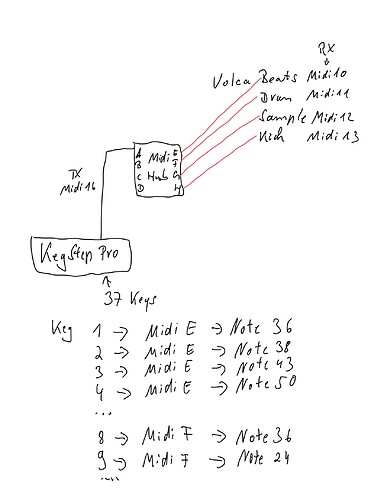 RX
Volca Beats Midi 10
Drum Midi 11
Sample Midi 12
Kick Midi 13
A Midi E
B F
C Hub G
D H
TX
Midi 16
KeyStep Pro
37 Keys
Key 1 → Midi E → Note 36
2 → Midi E → Note 38
3 → Midi E → Note 43
4 → Midi E → Note 50
...
8 → Midi F → Note 36
9 → Midi F → Note 24
....